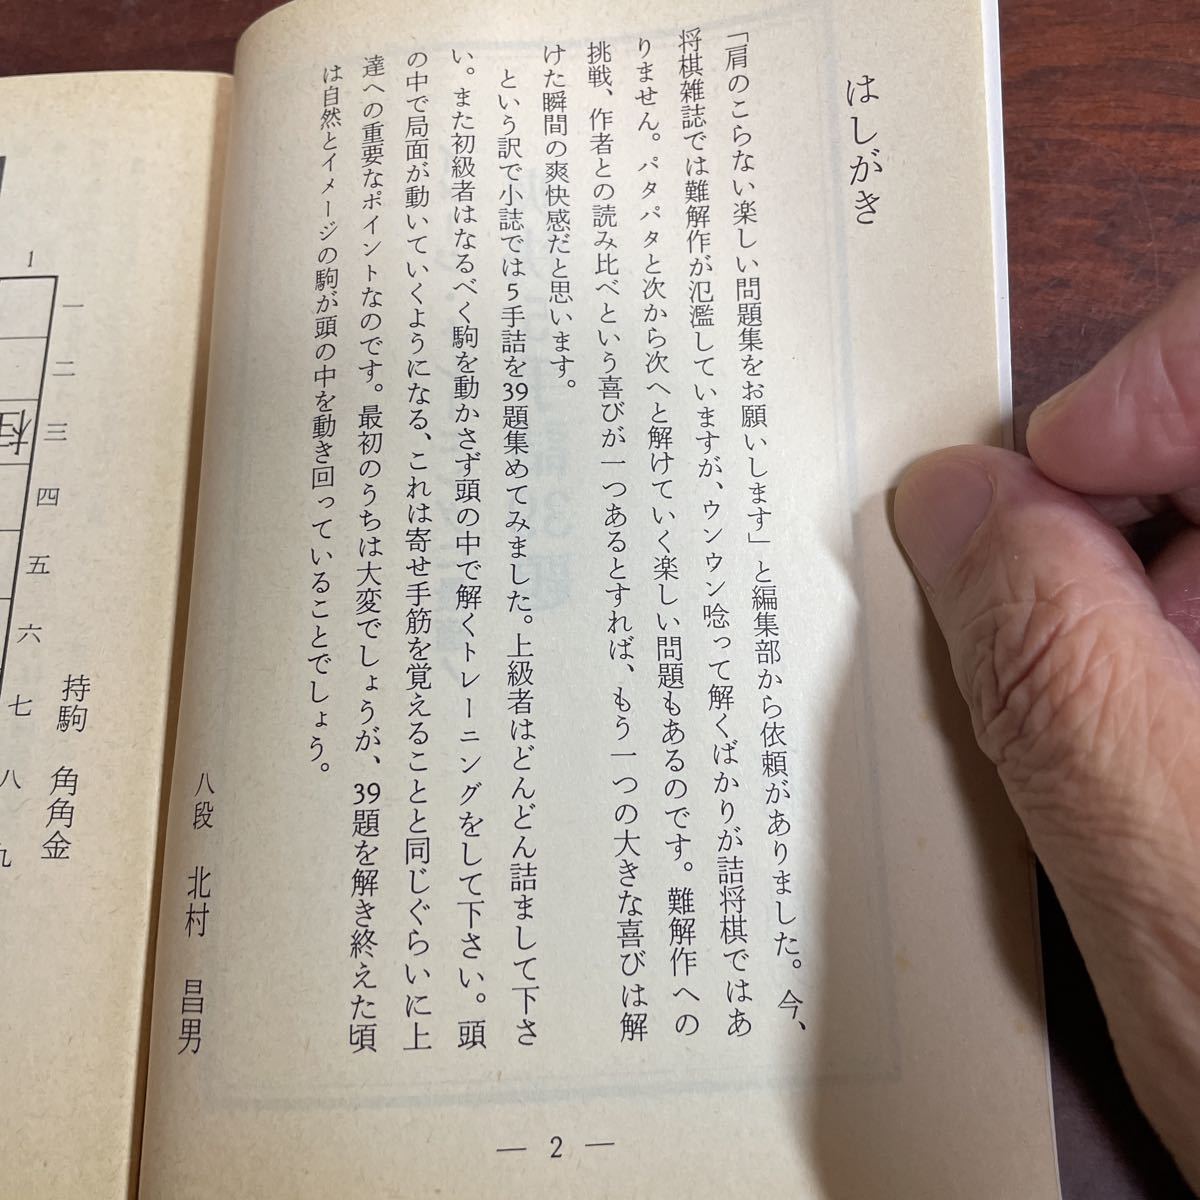 はしがき
「肩のこらない楽しい問題集をお願いします」と編集部から依頼がありました。今、
将棋雑誌では難解作が氾濫していますが、ウンウン唸って解くばかりが詰将棋ではあ
りません。パタパタと次から次へと解けていく楽しい問題もあるのです。難解作への
挑戦、作者との読み比べという喜びが一つあるとすれば、もう一つの大きな喜びは解
けた瞬間の爽快感だと思います。
という訳で小誌では5手詰を39題集めてみました。上級者はどんどん詰まして下さ
い。また初級者はなるべく駒を動かさず頭の中で解くトレーニングをして下さい。頭
の中で局面が動いていくようになる、これは寄せ手筋を覚えることと同じぐらいに上
達への重要なポイントなのです。最初のうちは大変でしょうが、39題を解き終えた頃
は自然とイメージの駒が頭の中を動き回っていることでしょう。
八段 北村 昌男
— 2 —
持駒 角角金
1
一
二
三
四
五
六
七
八
九
桂